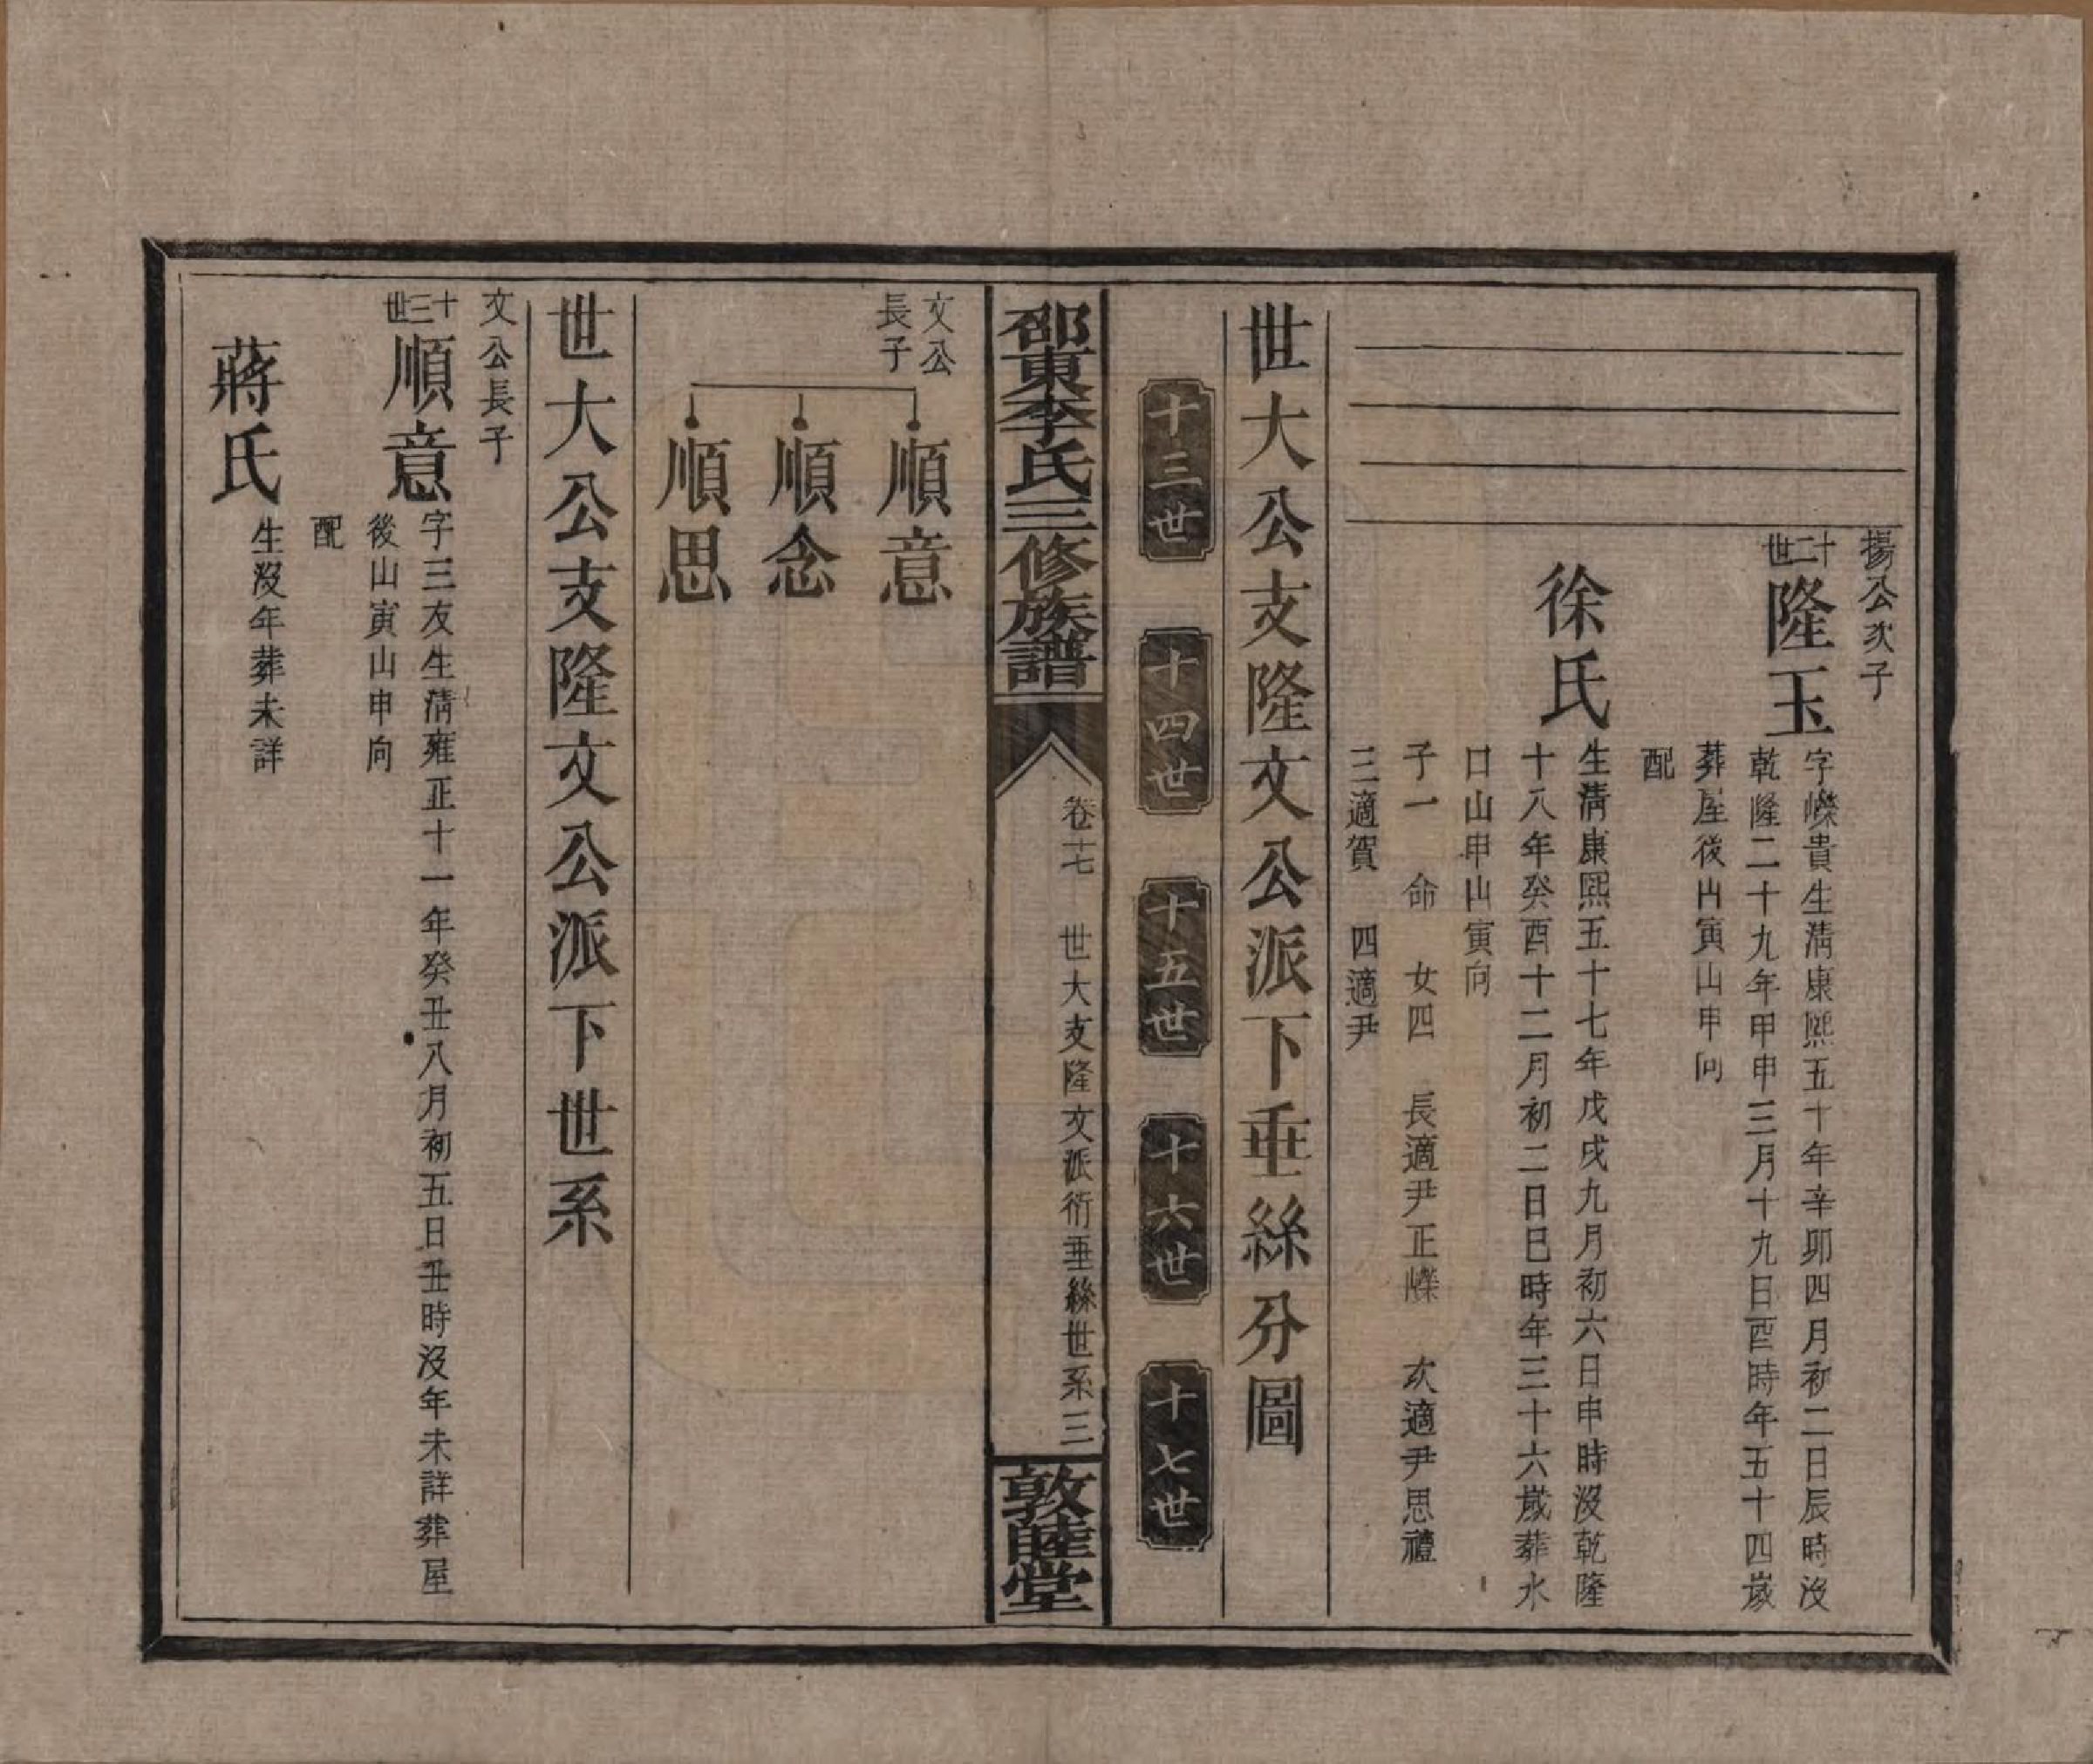 揚公次子
十二世
隆玉
字嶸貴生清康熙五十年辛卯四月初二日辰時沒
乾隆二十九年甲申三月十九日酉時年五十四歲
葬屋後山寅山申向
配
徐氏
生清康熙五十七年戊戌九月初六日申時沒乾隆
十八年癸酉十二月初二日巳時年三十六歲葬水
口山申山寅向
子一 命 女四 長適尹正嶸 次適尹思禮
三適賀 四適尹
世大公支隆文公派下垂絲分圖
十三世 十四世 十五世 十六世 十七世
邵東李氏三修族譜
卷十七 世大支隆文派衍垂絲世系三
敦睦堂
文公
長子
順意
順念
順思
世大公支隆文公派下世系
文公長子
十三世
順意
字三友生清雍正十一年癸丑八月初五日丑時沒年未詳葬屋
後山寅山申向
配
蔣氏
生沒年葬未詳